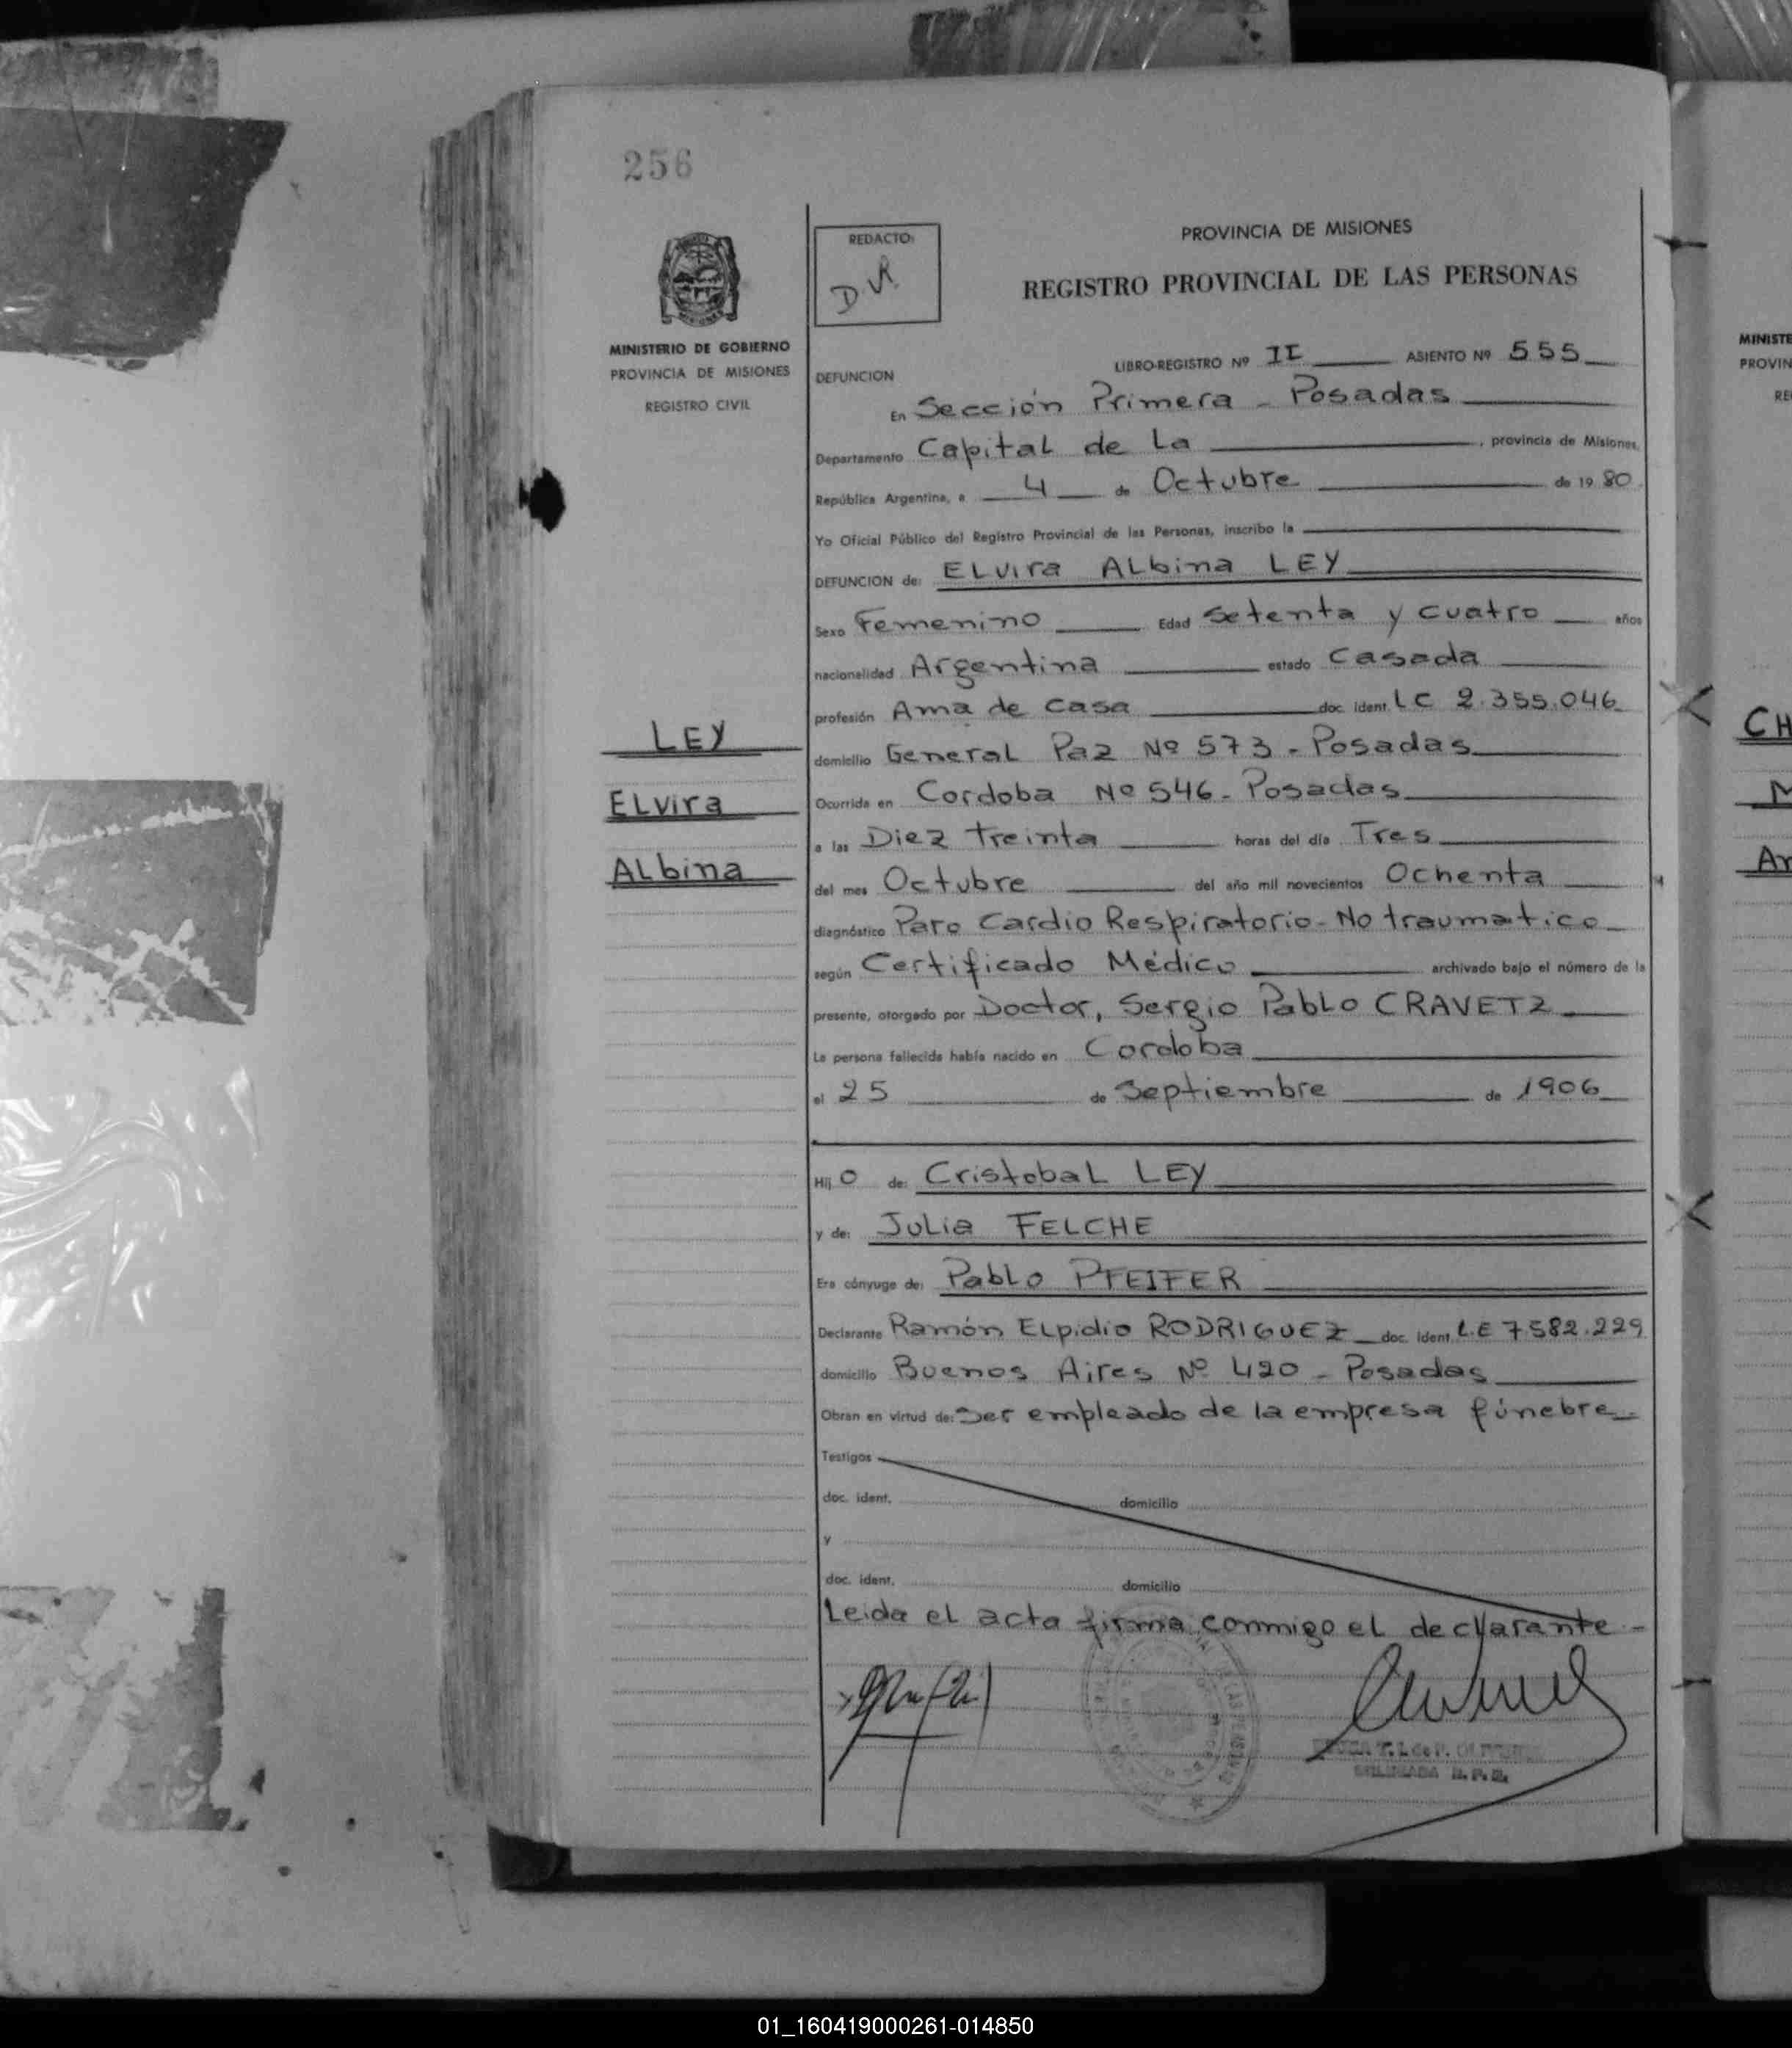 256
REDACTO:
D.R.
PROVINCIA DE MISIONES
REGISTRO PROVINCIAL DE LAS PERSONAS
MINISTERIO DE GOBIERNO
PROVINCIA DE MISIONES
REGISTRO CIVIL
LIBRO-REGISTRO Nº II ASIENTO Nº 555
DEFUNCION
En Sección Primera - Posadas
Departamento Capital de La , provincia de Misiones,
República Argentina, a 4 de Octubre de 19 80
Yo Oficial Público del Registro Provincial de las Personas, inscribo la
DEFUNCION de: ELvira ALbina LEY
Sexo Femenino Edad Setenta y cuatro años
nacionalidad Argentina estado Casada
profesión Ama de Casa doc. ident. LC 2.355.046
LEY
domicilio General Paz Nº 573 - Posadas
ELvira
Ocurrida en Cordoba Nº 546 - Posadas
a las Diez treinta horas del día Tres
ALbina
del mes Octubre del año mil novecientos Ochenta
diagnóstico Paro Cardio Respiratorio - No traumatico
según Certificado Médico archivado bajo el número de la
presente, otorgado por Doctor, Sergio PabLo CRAVETZ
La persona fallecida había nacido en Cordoba
el 25 de Septiembre de 1906
Hij o de: CristobaL LEY
y de: JuLia FELCHE
Era cónyuge de: PabLo PFEIFER
Declarante Ramón ELpidio RODRIGUEZ doc. ident. L.E 7.582.229
domicilio Buenos Aires Nº 420 - Posadas
Obran en virtud de: Ser empleado de la empresa fúnebre
Testigos
doc. ident. domicilio
y
doc. ident. domicilio
Leida el acta firma conmigo el declarante -
MINISTE
PROVIN
RE
CH
M
Ar
01_160419000261-014850